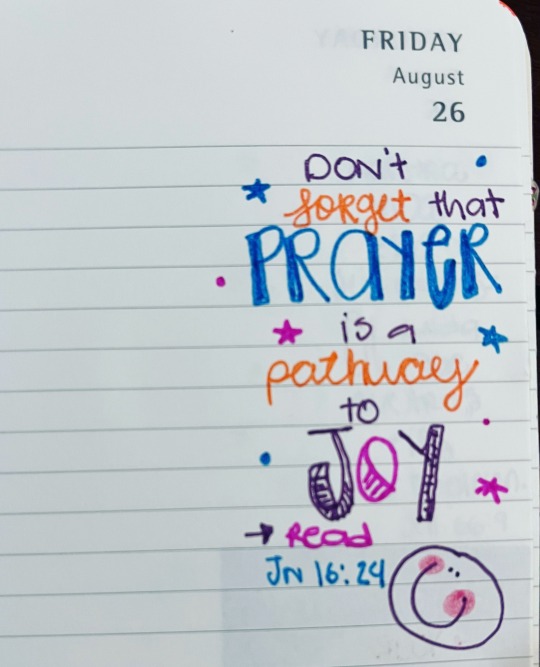 FRIDAY
August
26
DON't
forget that
PRAYER
is a
pathway
to
JOY
→ Read
JN 16:24